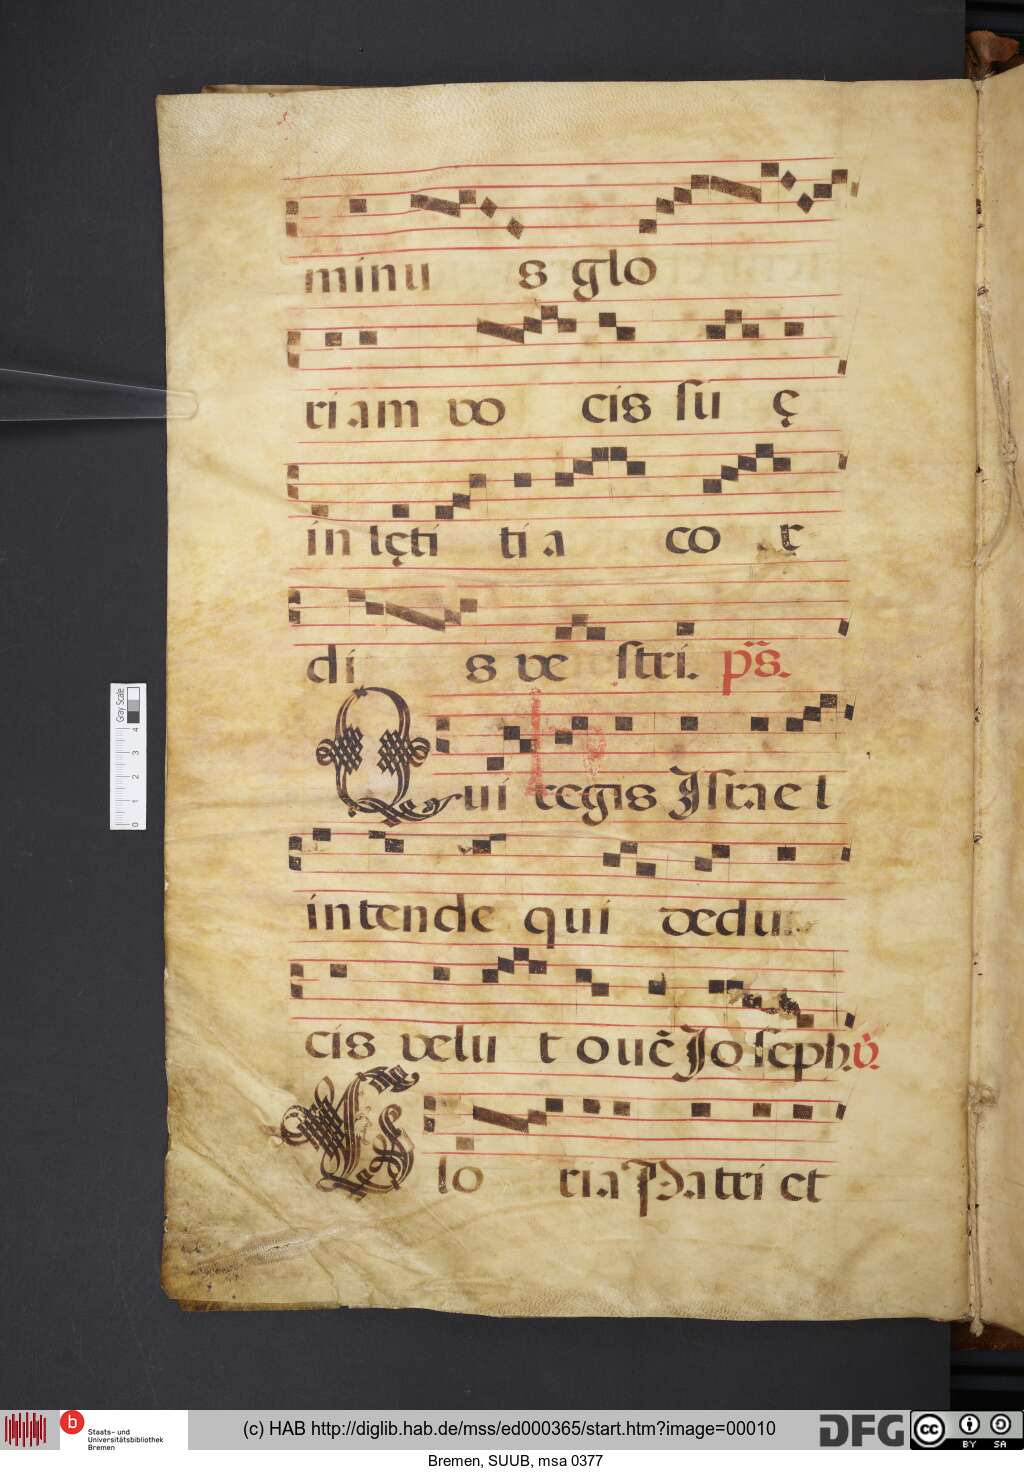 minu s glo
riam vo cis su ę
in lęti ti a co r
di s ve stri. ps.
Qui regis Israe l
intende qui dedu
cis velu t ovē Joseph. v.
Glo ria Patri et
Gray Scale
0 1 2 3 4
b Staats- und
Universitätsbibliothek
Bremen
(c) HAB http://diglib.hab.de/mss/ed000365/start.htm?image=00010
DFG
cc BY SA
Bremen, SUUB, msa 0377